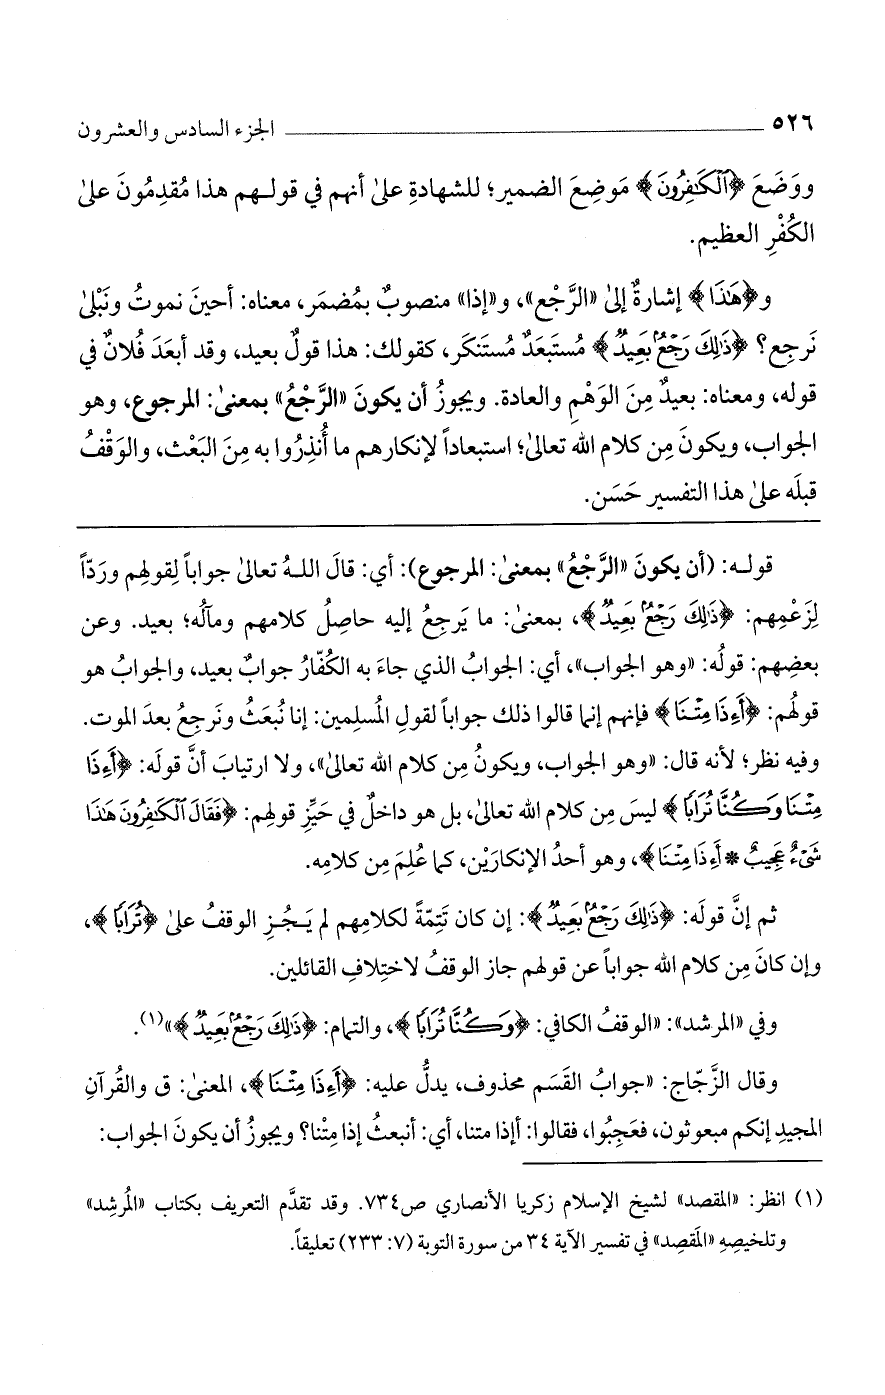 ٥٢٦ الجزء السادس والعشرون
ووَضَعَ ﴿ٱلْكَـٰفِرُونَ﴾ مَوضِعَ الضمير؛ للشهادةِ علىٰ أنهم في قولـهم هذا مُقدِمُونَ علىٰ
الكُفْرِ العظيم.
و﴿هَـٰذَا﴾ إشارةٌ إلىٰ «الرَّجْع»، و«إذا» منصوبٌ بمُضمَر، معناه: أحينَ نموتُ ونَبْلىٰ
نَرجِع؟ ﴿ذَٰلِكَ رَجْعٌۢ بَعِيدٌ﴾ مُستَبعَدٌ مُستَنكَر، كقولك: هذا قولٌ بعيد، وقد أبعَدَ فُلانٌ في
قوله، ومعناه: بعيدٌ مِنَ الوَهْمِ والعادة. ويجوزُ أن يكونَ «الرَّجْعُ» بمعنىٰ: المرجوع، وهو
الجواب، ويكونَ مِن كلام الله تعالىٰ؛ استبعاداً لإنكارهم ما أُنذِرُوا به مِنَ البَعْث، والوَقْفُ
قبلَه علىٰ هذا التفسير حَسَن.
قولـه: (أن يكونَ «الرَّجْعُ» بمعنىٰ: المرجوع): أي: قالَ اللـهُ تعالىٰ جواباً لِقولِهم ورَدّاً
لِزَعْمِهم: ﴿ذَٰلِكَ رَجْعٌۢ بَعِيدٌ﴾، بمعنىٰ: ما يَرجِعُ إليه حاصِلُ كلامهم ومآلُه؛ بعيد. وعن
بعضِهم: قولُه: «وهو الجواب»، أي: الجوابُ الذي جاءَ به الكُفّارُ جوابٌ بعيد، والجوابُ هو
قولُهم: ﴿أَءِذَا مِتْنَا﴾ فإنهم إنما قالوا ذلك جواباً لقولِ المُسلِمين: إنا نُبعَثُ ونَرجِعُ بعدَ الموت.
وفيه نظر؛ لأنه قال: «وهو الجواب، ويكونُ مِن كلام الله تعالىٰ»، ولا ارتيابَ أنَّ قولَه: ﴿أَءِذَا
مِتْنَا وَكُنَّا تُرَابًا﴾ ليسَ مِن كلام الله تعالىٰ، بل هو داخلٌ في حَيِّزِ قولهم: ﴿فَقَالَ ٱلْكَـٰفِرُونَ هَـٰذَا
شَىْءٌ عَجِيبٌ * أَءِذَا مِتْنَا﴾، وهو أحدُ الإنكارَيْن، كما عُلِمَ مِن كلامِه.
ثم إنَّ قولَه: ﴿ذَٰلِكَ رَجْعٌۢ بَعِيدٌ﴾: إن كان تَتِمّةً لكلامِهم لم يَـجُـزِ الوقفُ علىٰ ﴿تُرَابًا﴾،
وإن كانَ مِن كلام الله جواباً عن قولهم جاز الوقفُ لاختِلافِ القائلين.
وفي «المرشد»: «الوقفُ الكافي: ﴿وَكُنَّا تُرَابًا﴾، والتمام: ﴿ذَٰلِكَ رَجْعٌۢ بَعِيدٌ﴾»(١).
وقال الزَّجّاج: «جوابُ القَسَم محذوف، يدلُّ عليه: ﴿أَءِذَا مِتْنَا﴾، المعنىٰ: ق والقُرآنِ
المجيدِ إنكم مبعوثون، فعَجِبُوا، فقالوا: أإذا متنا، أي: أنبعثُ إذا مِتْنا؟ ويجوزُ أن يكونَ الجواب:
(١) انظر: «المقصد» لشيخ الإسلام زكريا الأنصاري ص٧٣٤. وقد تقدَّم التعريف بكتاب «المُرشِد»
وتلخيصِهِ «المَقصِد» في تفسير الآية ٣٤ من سورة التوبة (٧: ٢٣٣) تعليقاً.